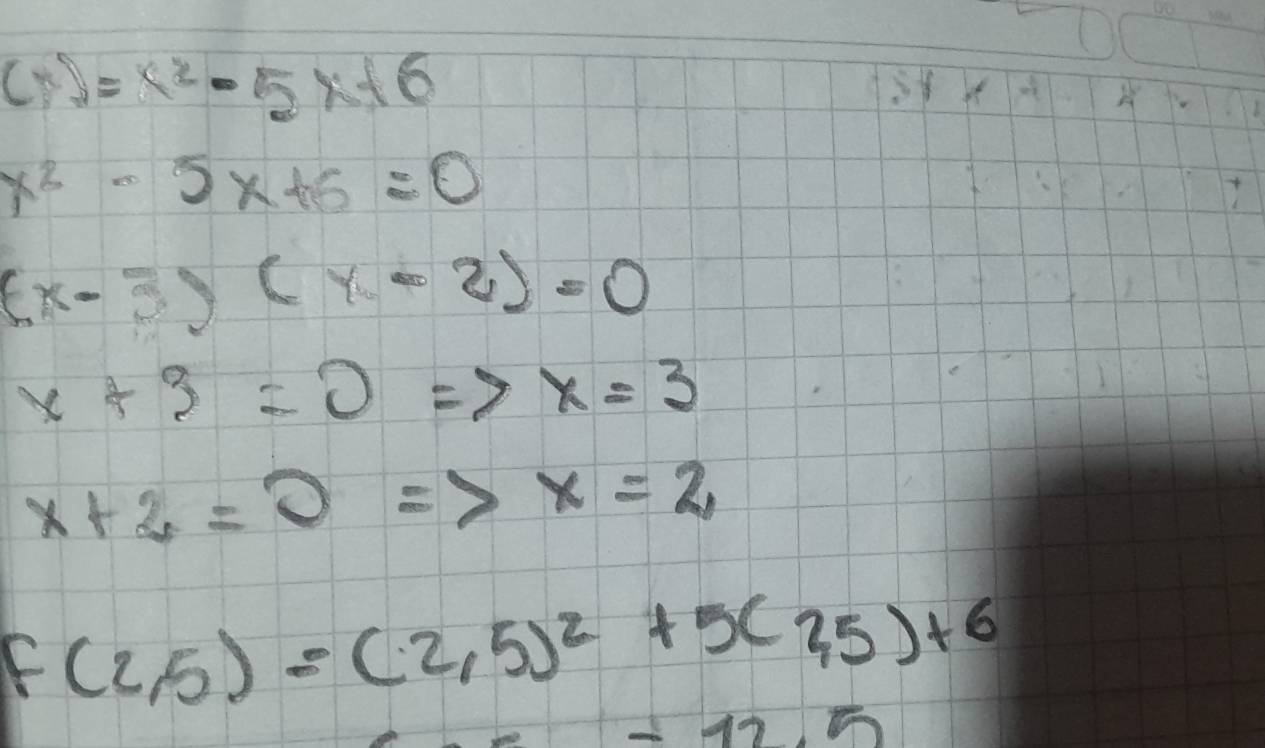 (x) = x² - 5x+6
x² - 5x+6 = 0
(x - 3) (x - 2) = 0
x + 3 = 0 => x = 3
x + 2 = 0 => x = 2
f(2,5) = (2,5)² + 5(2,5) + 6
- 12,5